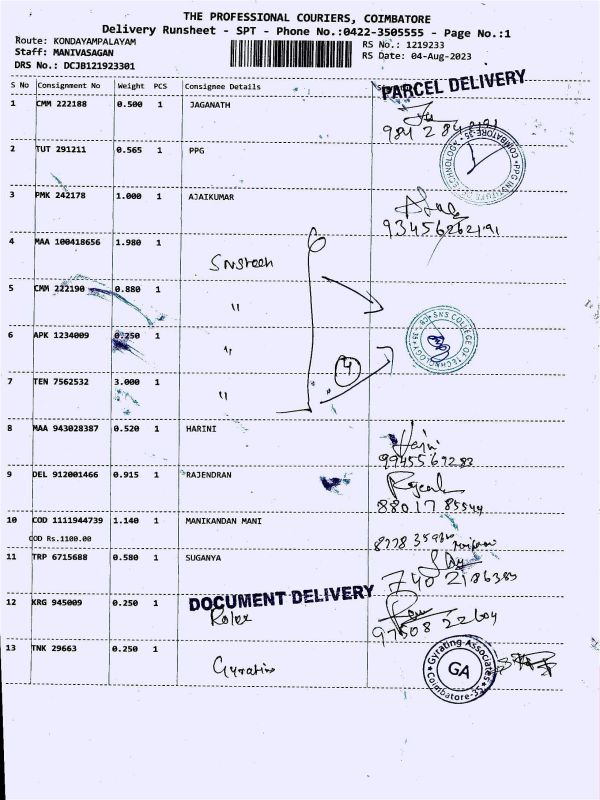 THE PROFESSIONAL COURIERS, COIMBATORE
Delivery Runsheet - SPT - Phone No.:0422-3505555 - Page No.:1
Route: KONDAYAMPALAYAM RS No.: 1219233
Staff: MANIVASAGAN RS Date: 04-Aug-2023
DRS No.: DCJB121923301
S No Consignment No Weight PCS Consignee Details
PARCEL DELIVERY
1 CMM 222188 0.500 1 JAGANATH
2 TUT 291211 0.565 1 PPG
3 PMK 242178 1.000 1 AJAIKUMAR
4 MAA 100418656 1.980 1
5 CMM 222190 0.880 1 "
SNS COLLEGE OF TECHNOLOGY
6 APK 1234009 0.250 1 "
4
7 TEN 7562532 3.000 1 "
8 MAA 943028387 0.520 1 HARINI
Harini
9 DEL 912001466 0.915 1 RAJENDRAN
10 COD 1111944739 1.140 1 MANIKANDAN MANI
COD Rs.1100.00
11 TRP 6715688 0.580 1 SUGANYA
DOCUMENT DELIVERY
12 KRG 945009 0.250 1
97508 22604
13 TNK 29663 0.250 1
Gyrating Associates
GA
Coimbatore-35